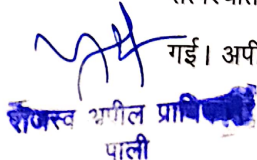 गई। अपी
राजस्व अपील प्राधिकारी
पाली